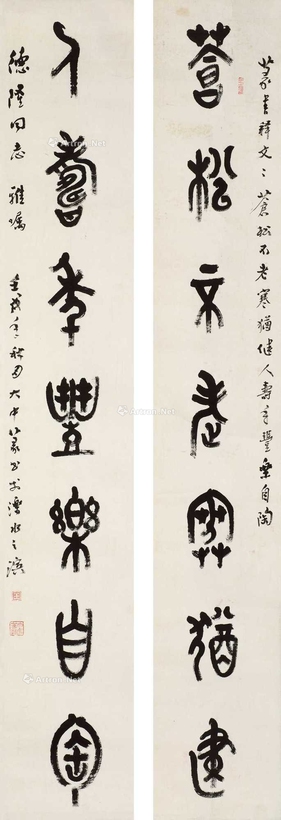 篆书释文：蒼松不老寒猶健人壽年豐樂自陶
蒼松不老寒猶健
人壽年豐樂自陶
德隆同志 雅嘱
壬戌年秋月大中篆书於濠水之濱